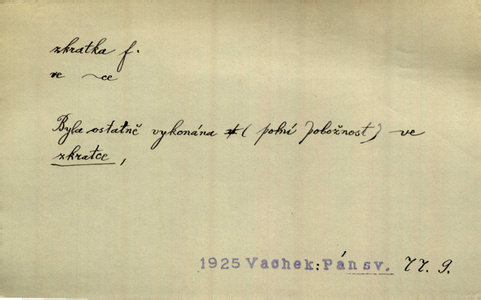 zkratka f.
ve ~ce
Byla ostatně vykonána (polní pobožnost) ve
zkratce,
1925 Vachek: Pán sv. 77. 9.